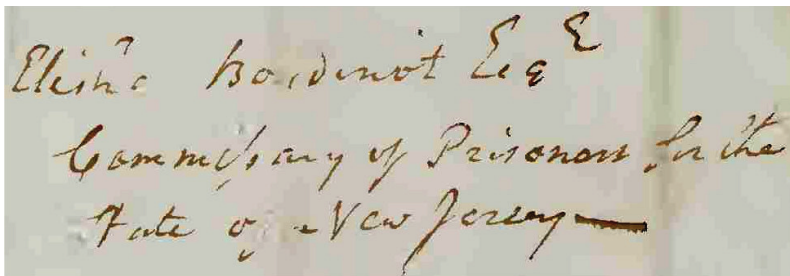 Elisha Boudinot Esqr
Commissary of Prisoners for the
State of New Jersey —